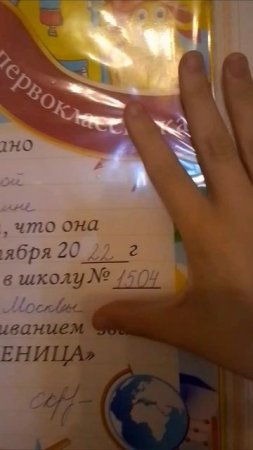 первокласс
ано
ой
ине
, что она
тября 20 22 г
в школу № 1504
Москвы
иванием зва
ЕНИЦА»